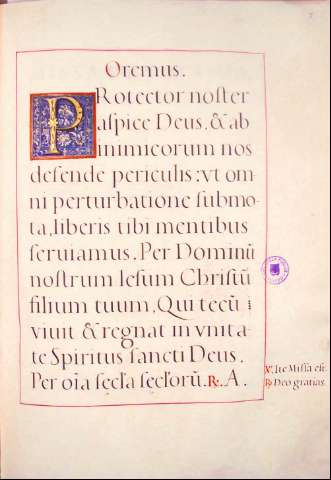 Oremus.
Protector noster
aspice Deus, & ab
inimicorum nos
defende periculis: vt om-
ni perturbatione submo-
ta, liberis tibi mentibus
seruiamus. Per Dominū
nostrum Iesum Christū
filium tuum, Qui tecū
viuit & regnat in vnita-
te Spiritus sancti Deus.
Per oīa sec̄la sec̄lorū. ℟. A.
℣. Ite Missa est.
℟. Deo gratias.